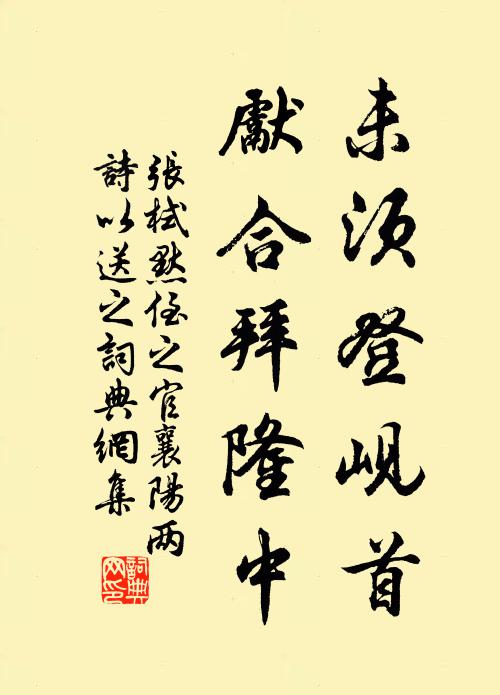 未須登峴首
獻合拜隆中
張栻默侄之官襄陽两
詩以送之詞典網集
詞典
网印